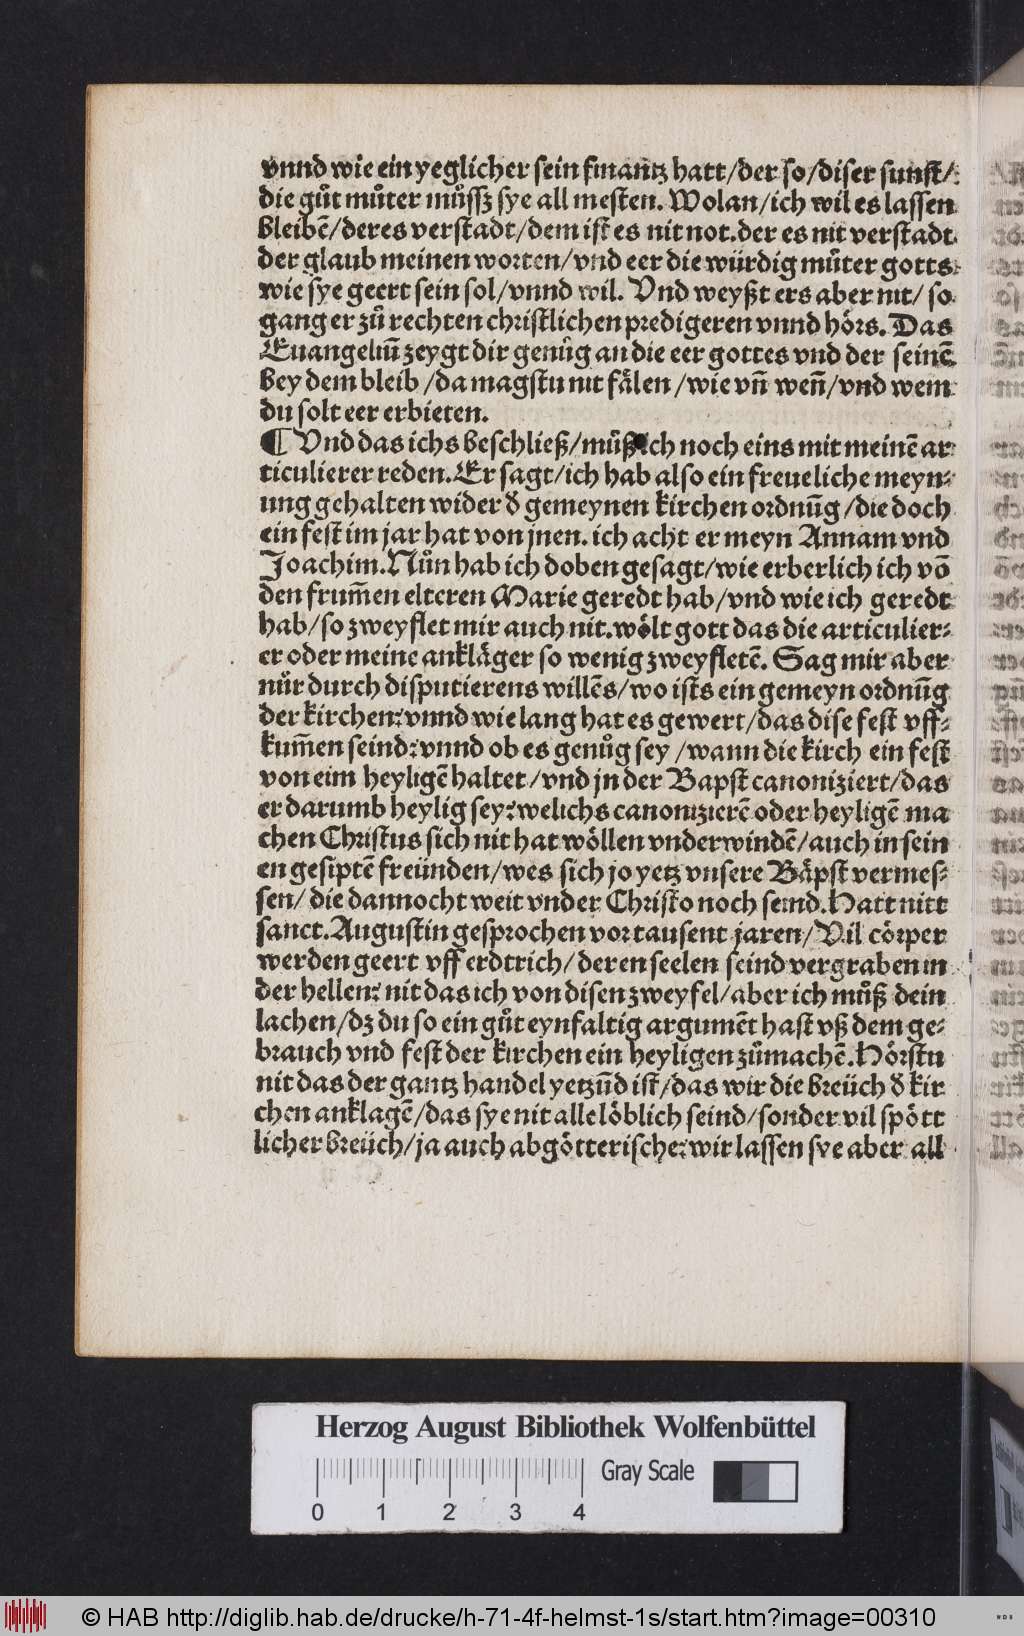 vnnd wie ein yeglicher sein finantz hatt/der so/diser sunst/
die gůt můter můssz sye all mesten. Wolan/ich wil es lassen
bleibē/der es verstadt/dem ist es nit not. der es nit verstadt
der glaub meinen worten/vnd eer die würdig můter gotts
wie sye geert sein sol/vnnd wil. Vnd weyßt ers aber nit/ so
gang er zů rechten christlichen predigeren vnnd hörs. Das
Euangeliū zeygt dir genůg an die eer gottes vnd der seinē
bey dem bleib /da magstu nit fälen /wie vn̄ wen̄/vnd wem
du solt eer erbieten.
¶ Vnd das ichs beschließ/můß ich noch eins mit meinē ar
ticulierer reden. Er sagt/ich hab also ein freueliche meyn⸗
ung gehalten wider d̄ gemeynen kirchen ordnūg /die doch
ein fest im jar hat von jnen. ich acht er meyn Annam vnd
Joachim. Nůn hab ich doben gesagt/wie erberlich ich vō
den frum̄en elteren Marie geredt hab/vnd wie ich geredt
hab/so zweyflet mir auch nit. wölt gott das die articulier⸗
er oder meine ankläger so wenig zweyfletē. Sag mir aber
nůr durch disputierens willēs/wo ists ein gemeyn ordnūg
der kirchen: vnnd wie lang hat es gewert/das dise fest vff⸗
kum̄en seind: vnnd ob es genůg sey /wann die kirch ein fest
von eim heyligē haltet/vnd jn der Bapst canoniziert/das
er darumb heylig sey: welichs canonizierē oder heyligē ma
chen Christus sich nit hat wöllen vnderwindē/auch in sein
en gesiptē freünden/wes sich jo yetz vnsere Bäpst vermes⸗
sen/ die dannocht weit vnder Christo noch seind. Hatt nitt
sanct. Augustin gesprochen vor tausent jaren/ Vil cörper
werden geert vff erdtrich/ deren seelen seind vergraben in
der hellen: nit das ich von disen zweyfel/aber ich můß dein
lachen/dz du so ein gůt eynfaltig argumēt hast vß dem ge⸗
brauch vnd fest der kirchen ein heyligen zůmachē. Hörstu
nit das der gantz handel yetzūd ist/das wir die breüch d̄ kir
chen anklagē/das sye nit alle löblich seind/sonder vil spött
licher breüch/ja auch abgötterische: wir lassen sye aber all
Herzog August Bibliothek Wolfenbüttel
Gray Scale
0 1 2 3 4
© HAB http://diglib.hab.de/drucke/h-71-4f-helmst-1s/start.htm?image=00310